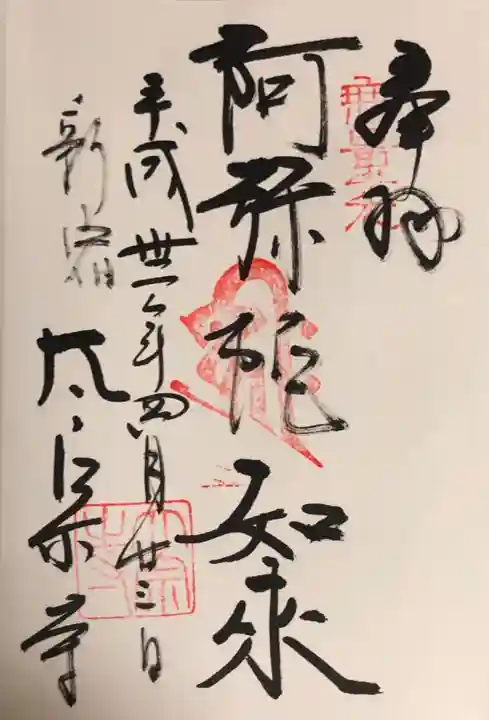 奉拝
阿弥陀如来
平成卅一年四月廿三日
新宿 太宗寺